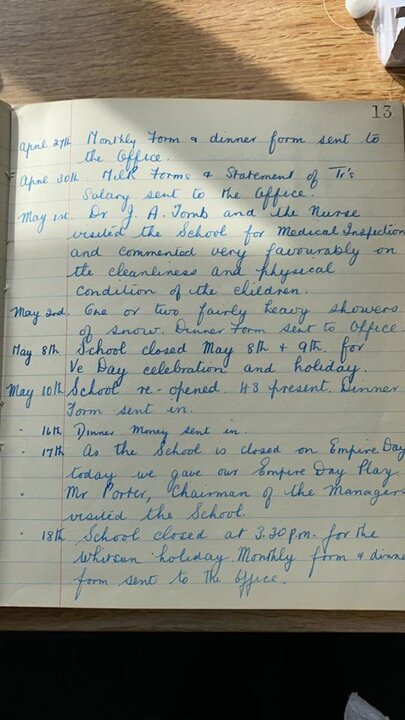 13
April 27th Monthly Form & dinner form sent to
the Office.
April 30th. Milk Forms & Statement of Tr's
Salary sent to the Office.
May 1st. Dr J. A. Tomb and the Nurse
visited the School for Medical Inspection
and commented very favourably on
the cleanliness and physical
condition of the children.
May 2nd. One or two fairly heavy showers
of snow. Dinner Form sent to Office.
May 8th School closed May 8th & 9th. for
Ve Day celebration and holiday.
May 10th School re-opened. 43 present. Dinner
Form sent in.
" 16th Dinner Money sent in.
" 17th As the School is closed on Empire Day
today we gave our Empire Day Play.
Mr Porter, Chairman of the Managers
visited the School.
" 18th School closed at 3.30 p.m. for the
Whitsun holiday. Monthly form & dinner
form sent to the Office.